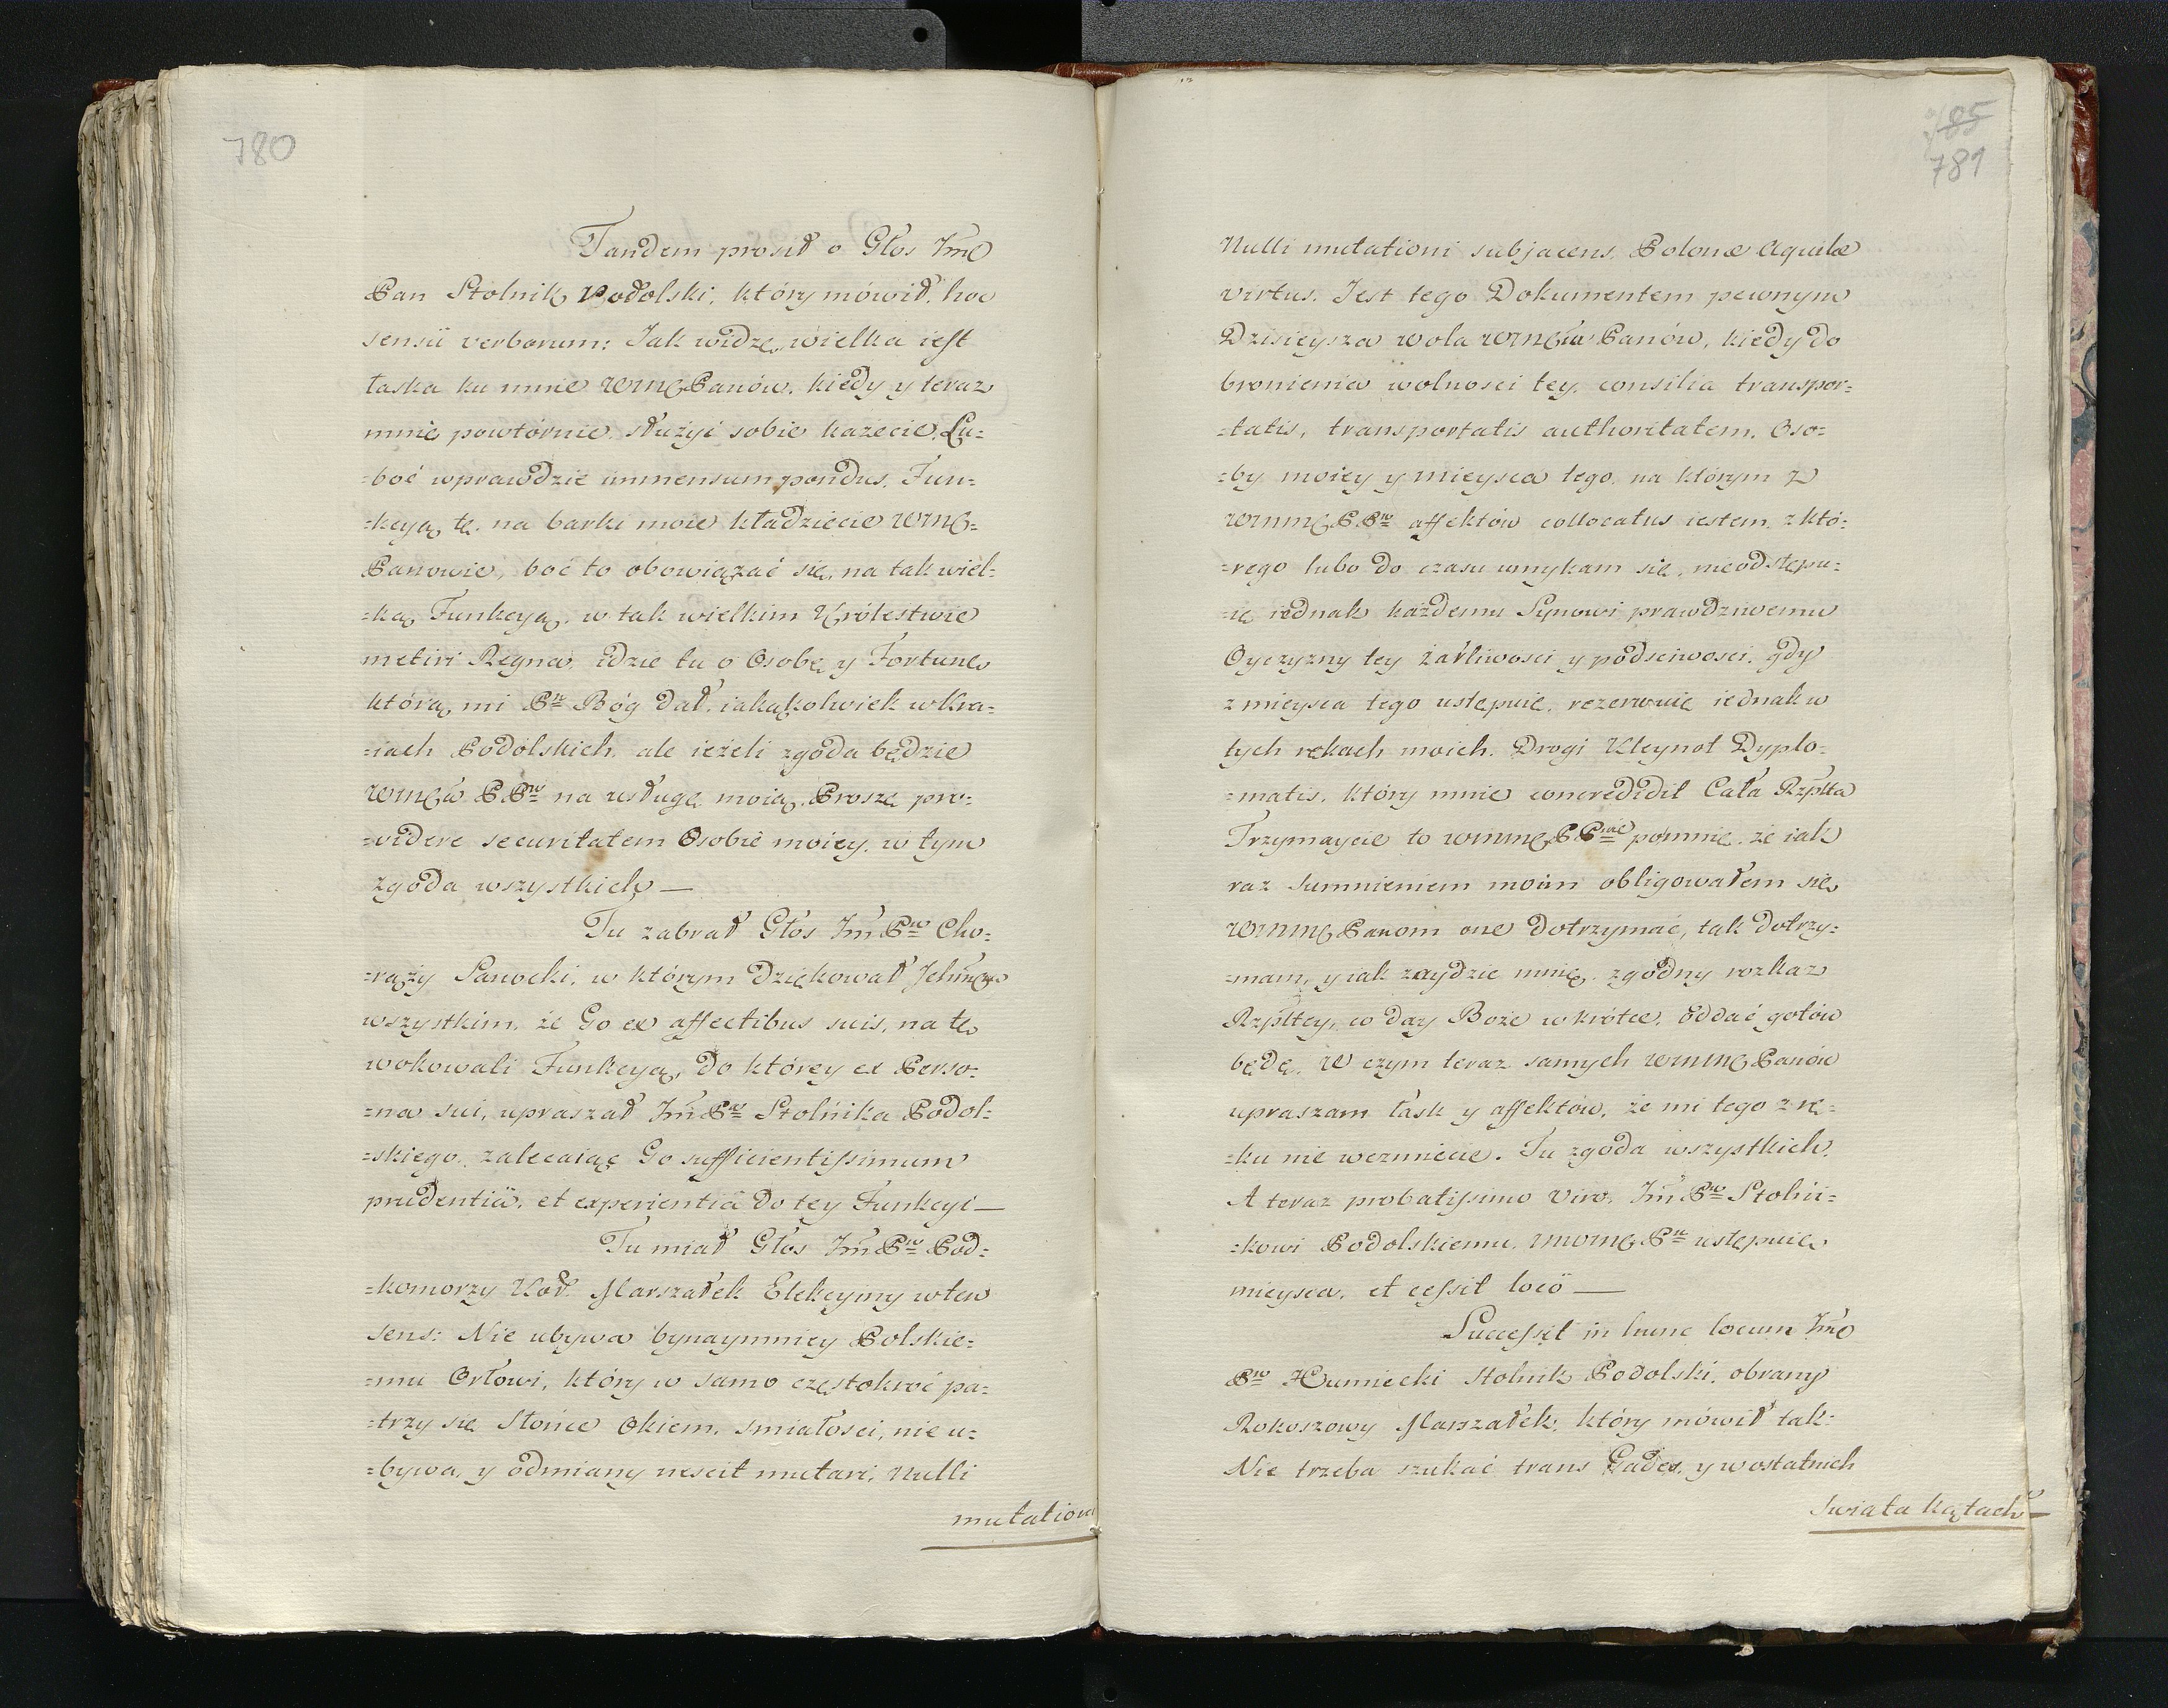 780
Tandem prosił o Głos Jmc
Pan Stolnik Podolski, który mówił, hoc
sensü verborum: Jak widzę, wielka iest
łaska ku mnie WMC Panów, kiedy y teraz
mnie powtórnie służyć sobie każecie, Lu=
=boć wprawdzie immensum pondus, Fun=
=kcyą tę, na barki moie kładziecie WMC=
Panowie, boć to obowiązać się, na tak wiel=
=ką Funkcyą, w tak wielkim Królestwie
metiri Regna, idzie tu o Osobę y Fortunę
którą mi Pn Bóg dał, iakąkolwiek w Kra=
=iach Podolskich, ale ieżeli zgoda będzie
WMCw P. Pnw na usługę moią, Proszę pro=
=videre securitatem Osobie moiey, w tym
zgoda wszystkich —
Tu zabrał Głos Jm Pn Cho=
=rąży Sanocki, w którym dziękował Jchmcm
wszystkim, że Go ex affectibus suis, na tę
wokowali Funkcyą, do którey ex Perso=
=na sui, upraszał Jm Pn Stolnika Podol=
=skiego, zalecaiąc Go sufficientissimum
prudentiä, et experientiâ do tey Funkcyi —
Tu miał Głos Jm Pn Pod=
=komorzy Koł. Marszałek Elekcyiny w ten
sens: Nie ubywa bynaymniey Polskie=
=mu Orłowi, który w samo częstokroć pa=
=trzy się Słońce Okiem, smiałosci, nie u=
=bywa, y odmiany nescit mutari, Nulli
mutationi
785
781
Nulli mutationi subjacens, Polonæ Aquilæ
virtus. Jest tego Dokumentem pewnym
Dzisieysza wola WMCw Panów, kiedy do
bronienia wolnosci tey, consilia transpor=
=tatis, transportatis authoritatem. Oso=
=by moiey y mieysca tego, na którym z
WMMC P. Pnw affektów collocatus iestem, z któ=
=rego lubo do czasu umykam się, nieodstępu=
=ię iednak każdemu Synowi prawdziwemu
Oyczyzny tey żarliwosci y podsciwosci, gdy
z mieysca tego ustępuię, rezerwuię iednak w
tych rękach moich, Drogi Kleynot Dyplo=
=matis, który mnie concredidit Cała Rzplta
Trzymaycie to WMMC P. Pnie pomnię, że iak
raz sumnieniem moim obligowałem się
WMMC Panom one dotrzymać, tak dotrzy=
=mam, y iak zaydzie mnię, zgodny rozkaz
Rzpltey, co day Boże wkrótce, oddać gotów
będę, W czym teraz samych WMMC Panów
upraszam łask y affektów, że mi tego z rę=
=ku nie wezmiecie. Tu zgoda wszystkich.
A teraz probatissimo Viro, Jm Pnu Stolni=
=kowi Podolskiemu, MWMC Pn ustępuię
mieysca, et cessit locö —
Successit in hunc locum Jmc
Pn Humiecki Stolnik Podolski, obrany
Rokoszowy Marszałek, który mówił tak:
Nie trzeba szukać trans Gades, y w ostatnich
swiata kątach —